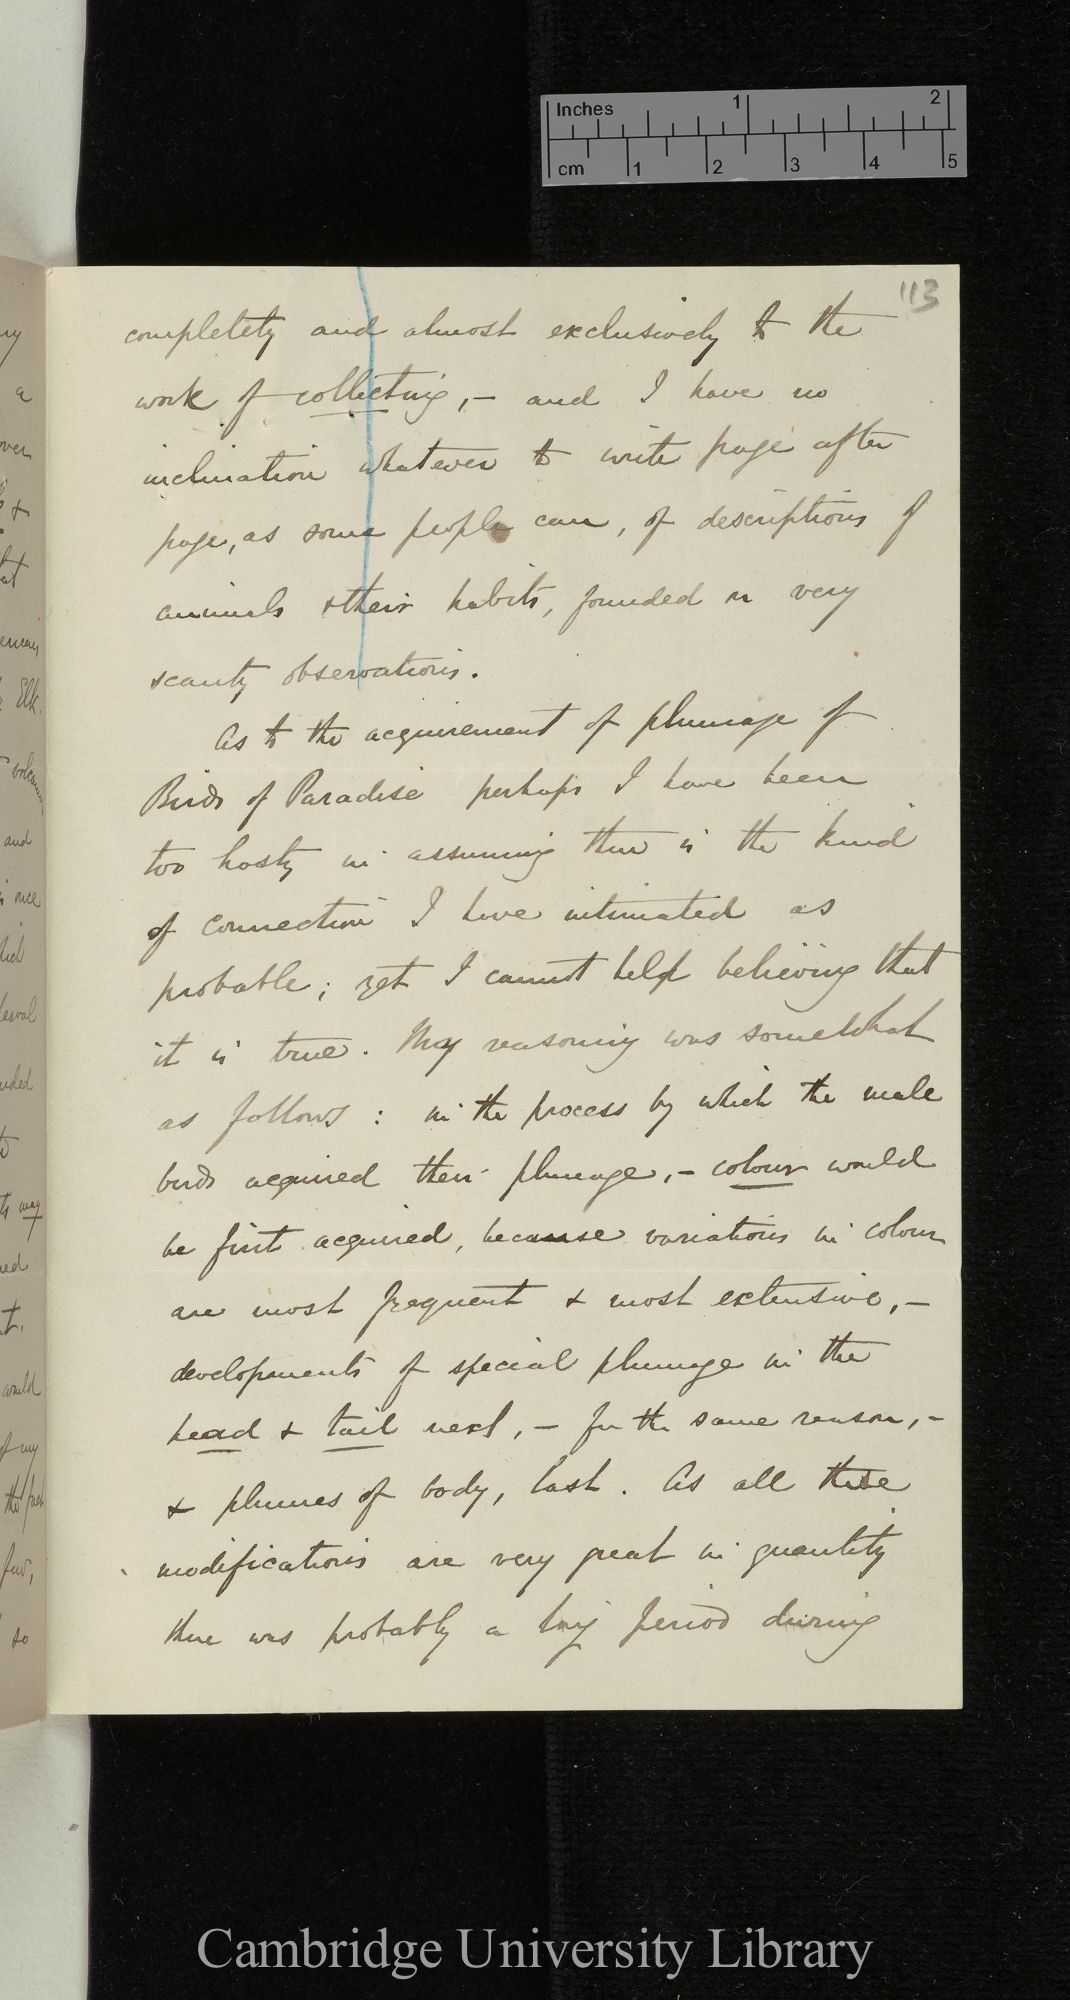 Inches 1 2
cm 1 2 3 4 5
113
completely and almost exclusively to the
work of collecting,— and I have no
inclination whatever to write page after
page, as some people can, of descriptions of
animals & their habits, founded on very
scanty observations.
As to the acquirement of plumage of
Birds of Paradise perhaps I have been
too hasty in assuming there is the kind
of connection I have intimated as
probable; yet I cannot help believing that
it is true. My reasoning was somewhat
as follows: in the process by which the male
birds acquired their plumage,— colour would
be first acquired, because variations in colour
are most frequent & most extensive,—
developments of special plumage in the
head & tail next,— for the same reason,—
& plumes of body, last. As all these
modifications are very great in quantity
there was probably a long period during
my
a
over
&
at
Elk.
and
once
would
of my
the
few,
so
Cambridge University Library